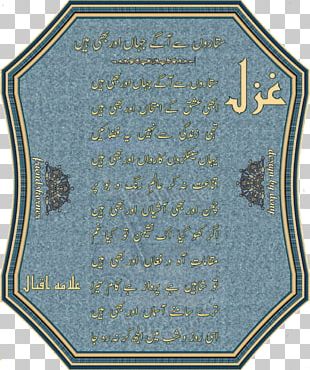 ستاروں سے آگے جہاں اور بھی ہیں
غزل
ستاروں سے آگے جہاں اور بھی ہیں
ابھی عشق کے امتحاں اور بھی ہیں
تہی زندگی سے نہیں یہ فضائیں
یہاں سینکڑوں کارواں اور بھی ہیں
قناعت نہ کر عالم رنگ و بو پر
چمن اور بھی آشیاں اور بھی ہیں
اگر کھو گیا اک نشیمن تو کیا غم
مقامات آہ و فغاں اور بھی ہیں
تو شاہیں ہے پرواز ہے کام تیرا
ترے سامنے آسماں اور بھی ہیں
اسی روز و شب میں الجھ کر نہ رہ جا
علامہ اقبال